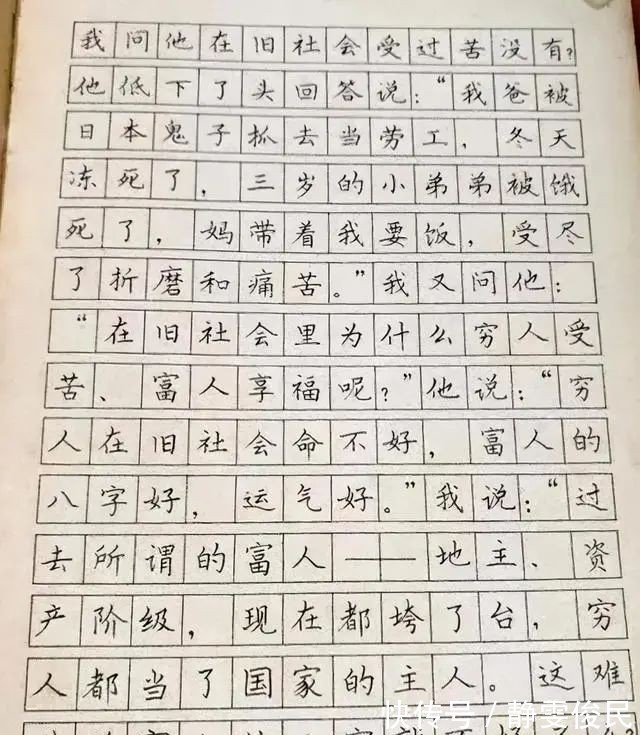 我问他在旧社会受过苦没有?
他低下了头回答说:“我爸被
日本鬼子抓去当劳工,冬天
冻死了,三岁的小弟弟被饿
死了,妈带着我要饭,受尽
了折磨和痛苦。”我又问他:
“在旧社会里为什么穷人受
苦、富人享福呢?”他说:“穷
人在旧社会命不好,富人的
八字好,运气好。”我说:“过
去所谓的富人——地主、资
产阶级,现在都垮了台,穷
人都当了国家的主人。这难
快传号/静雯俊民